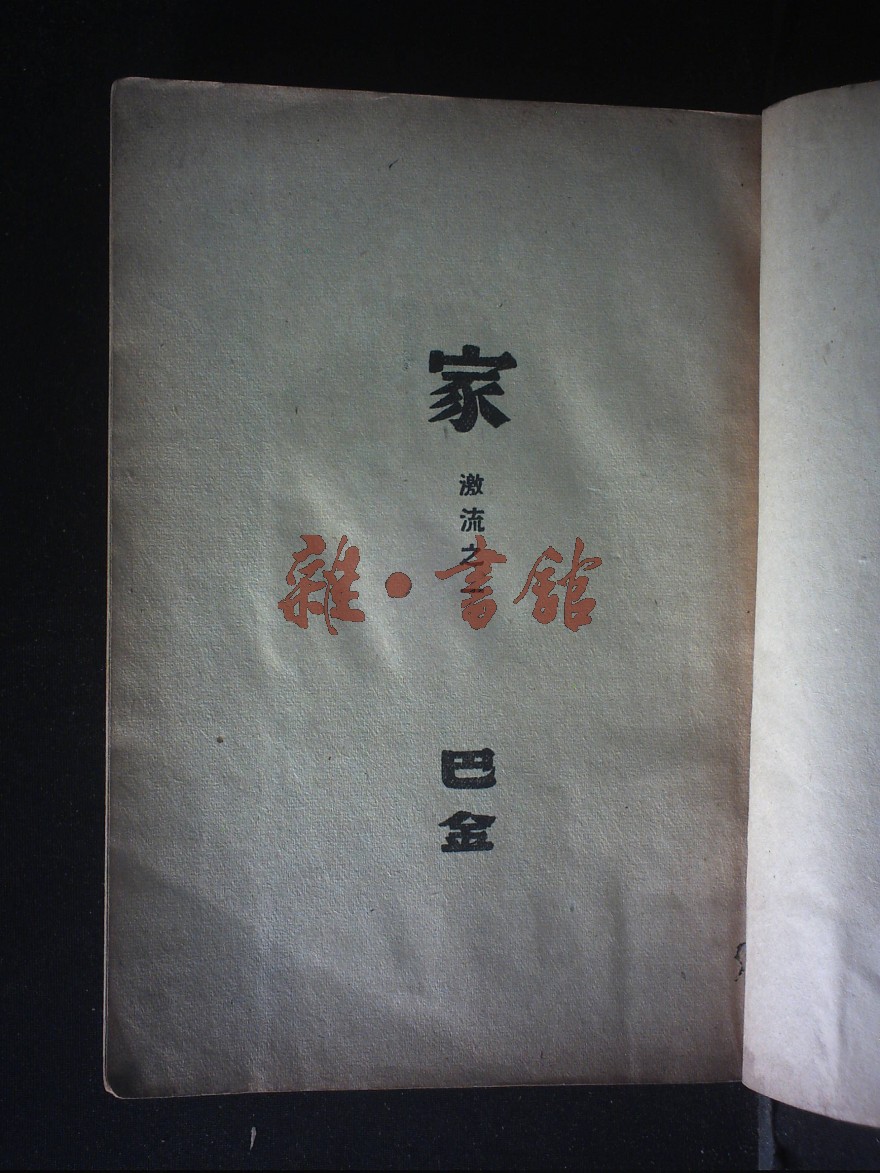 家
激流之一
雜·書館
巴金